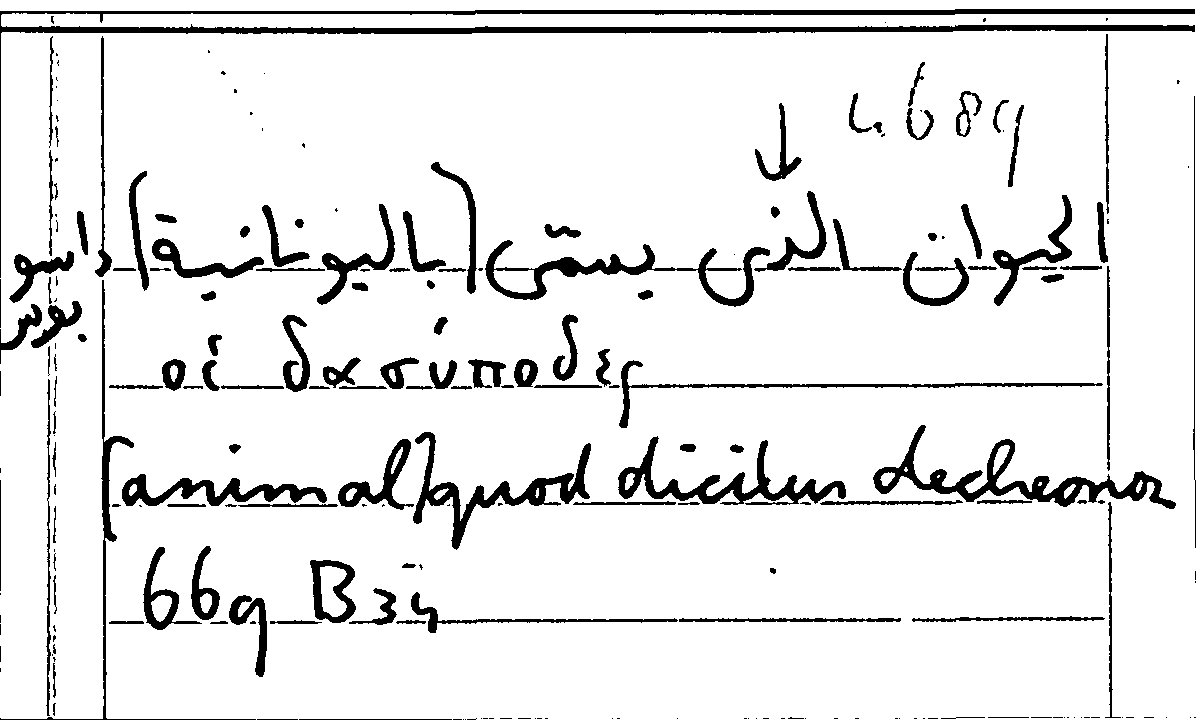 4689
الحيوان الذى يسمّى (باليونانية) داسو
بودس
οἱ δασύποδες
[animal] quod dicitur decheonoz
669 B 34